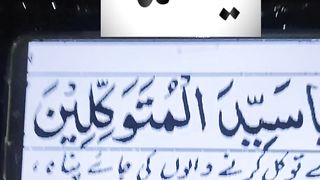 یا سَیِّدَ الْمُتَوَکِّلِیْنَ
توکل کرنے والوں کی جائے پناہ،